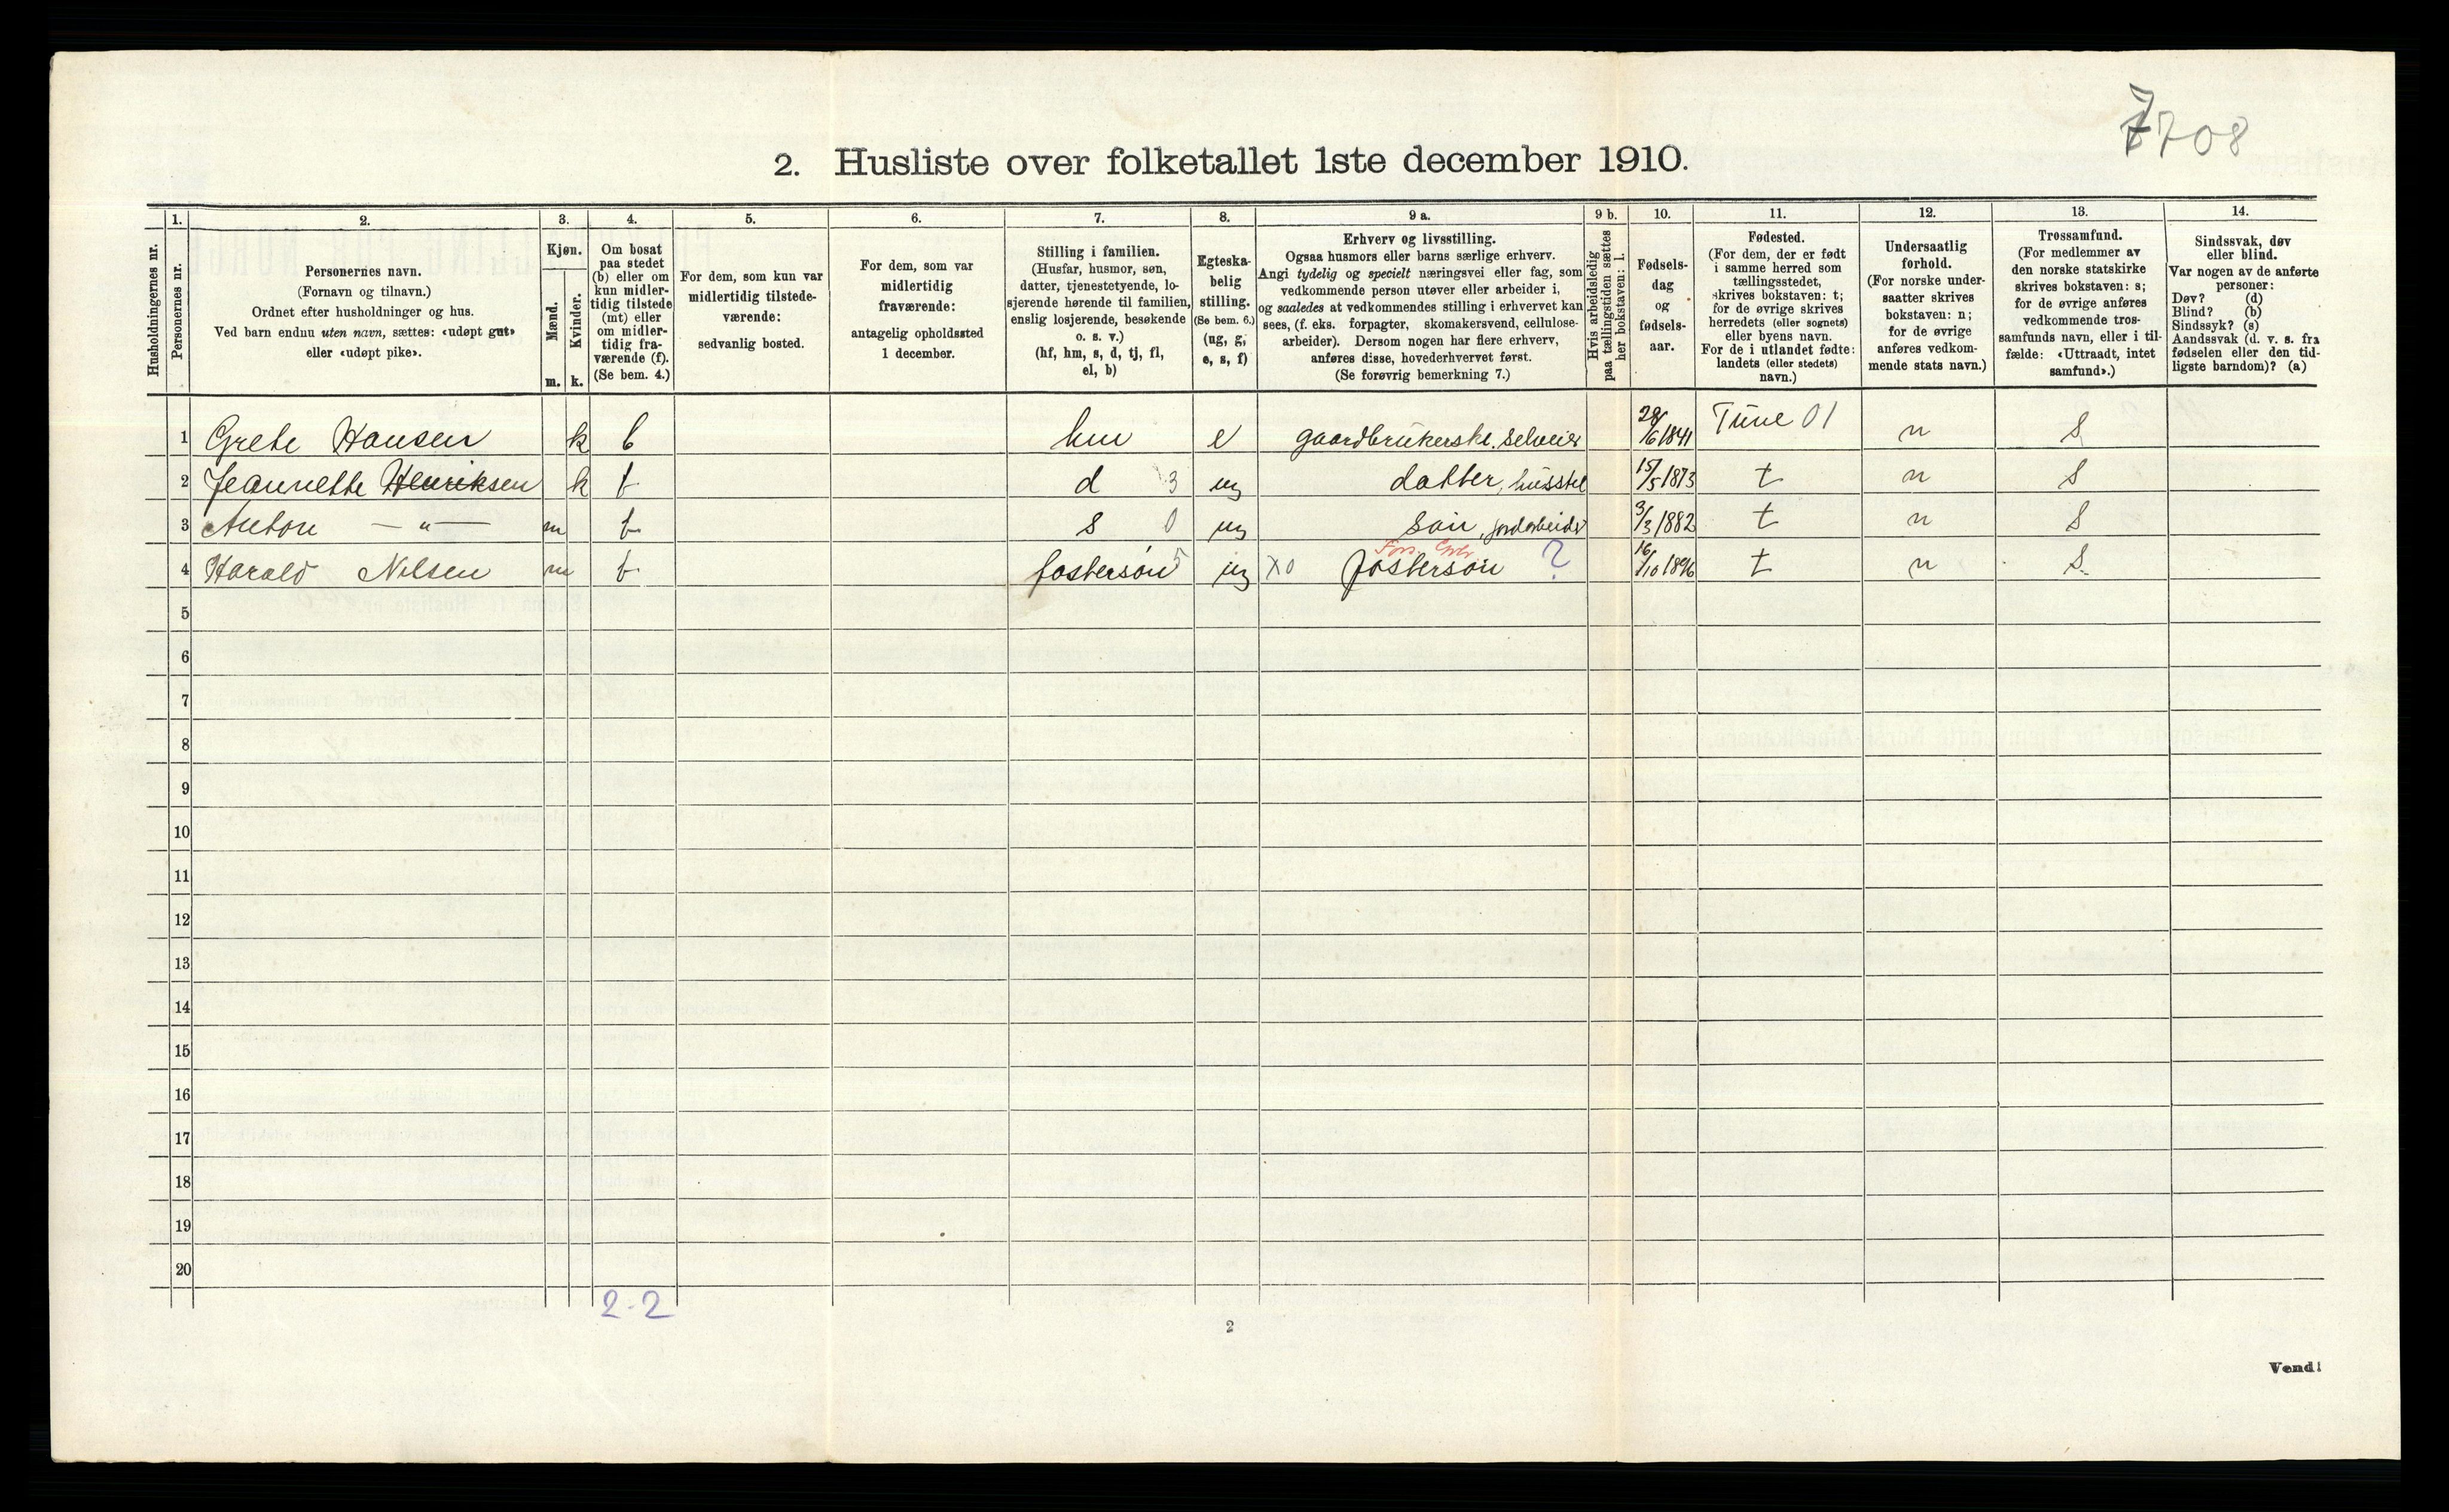 7708
2. Husliste over folketallet 1ste december 1910.
Husholdningernes nr.
1.
Personernes nr.
2.
Personernes navn.
(Fornavn og tilnavn.)
Ordnet efter husholdninger og hus.
Ved barn endnu uten navn, sættes: «udøpt gut»
eller «udøpt pike».
3.
Kjøn.
Mænd.
Kvinder.
m. k.
4.
Om bosat
paa stedet
(b) eller om
kun midler-
tidig tilstede
(mt) eller
om midler-
tidig fra-
værende (f).
(Se bem. 4.)
5.
For dem, som kun var
midlertidig tilstede-
værende:
sedvanlig bosted.
6.
For dem, som var
midlertidig
fraværende:
antagelig opholdssted
1 december.
7.
Stilling i familien.
(Husfar, husmor, søn,
datter, tjenestetyende, lo-
sjerende hørende til familien,
enslig losjerende, besøkende
o. s. v.)
(hf, hm, s, d, tj, fl,
el, b)
8.
Egteska-
belig
stilling.
(Se bem. 6.)
(ug, g,
e, s, f)
9 a.
Erhverv og livsstilling.
Ogsaa husmors eller barns særlige erhverv.
Angi tydelig og specielt næringsvei eller fag, som
vedkommende person utøver eller arbeider i,
og saaledes at vedkommendes stilling i erhvervet kan
sees, (f. eks. forpagter, skomakersvend, cellulose-
arbeider). Dersom nogen har flere erhverv,
anføres disse, hovederhvervet først.
(Se forøvrig bemerkning 7.)
9 b.
Hvis arbeidsledig
paa tællingstiden sættes
her bokstaven: l.
10.
Fødsels-
dag
og
fødsels-
aar.
11.
Fødested.
(For dem, der er født
i samme herred som
tællingsstedet,
skrives bokstaven: t;
for de øvrige skrives
herredets (eller sognets)
eller byens navn.
For de i utlandet fødte:
landets (eller stedets)
navn.)
12.
Undersaatlig
forhold.
(For norske under-
saatter skrives
bokstaven: n;
for de øvrige
anføres vedkom-
mende stats navn.)
13.
Trossamfund.
(For medlemmer av
den norske statskirke
skrives bokstaven: s;
for de øvrige anføres
vedkommende tros-
samfunds navn, eller i til-
fælde: «Uttraadt, intet
samfund».)
14.
Sindssvak, døv
eller blind.
Var nogen av de anførte
personer:
Døv? (d)
Blind? (b)
Sindssyk? (s)
Aandssvak (d. v. s. fra
fødselen eller den tid-
ligste barndom)? (a)
1 Grete Hansen k b hm e gaardbrukerske. selveier 28/6 1841 Tune 01 n S
2 Jeannette Henriksen k b d 3 ug datter, husstel 15/5 1873 t n S
3 Anton — " — m b s 0 ug søn, jordarbeider 3/3 1882 t n S
4 Harald Nilsen m b fostersøn 5 ug X0 fostersøn ? 16/10 1896 t n S.
5
6
7
8
9
10
11
12
13
14
15
16
17
18
19
20
2-2
2
Vend!